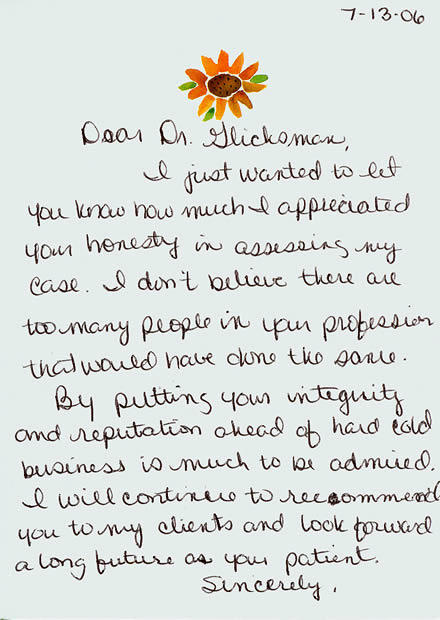 7-13-06
Dear Dr. Glicksman,
I just wanted to let
you know how much I appreciated
your honesty in assessing my
case. I don't believe there are
too many people in your profession
that would have done the same.
By putting your integrity
and reputation ahead of hard cold
business is much to be admired.
I will continue to recommend
you to my clients and look forward
a long future as your patient.
Sincerely,